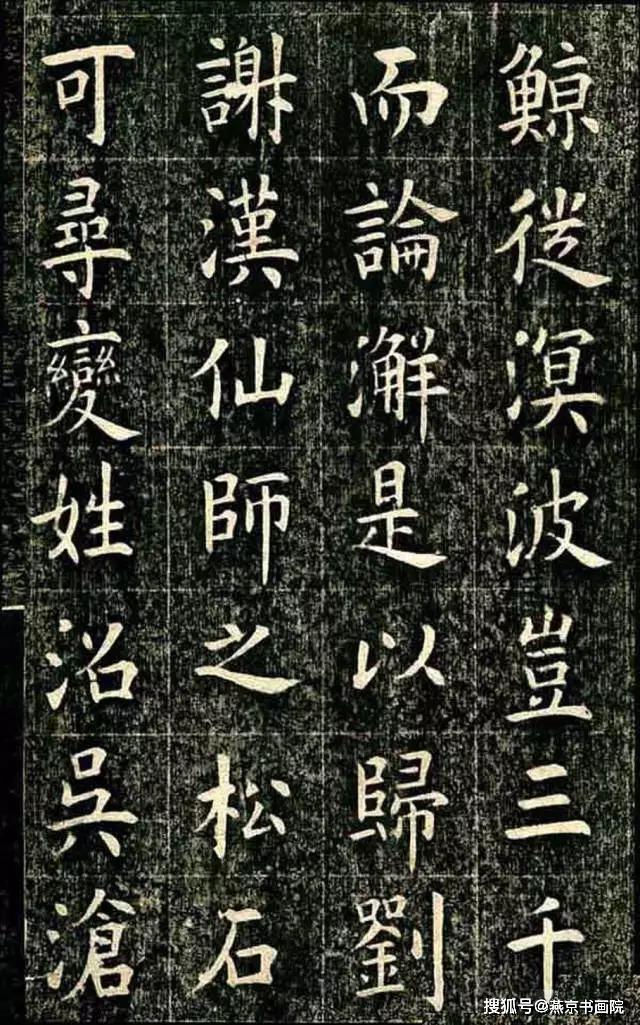 鯨從溟波豈三千
而論澥是以歸劉
謝漢仙師之松石
可尋變姓沿吳滄
搜狐号@燕京书画院